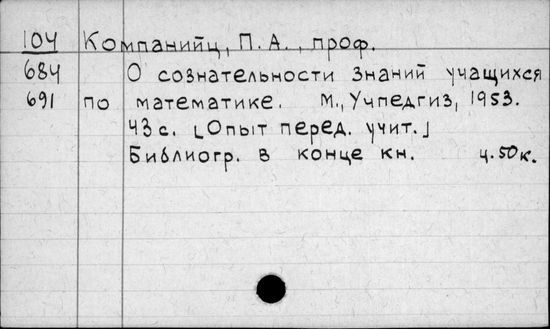 104 Компанийц, П. А., проф.
684 О сознательности знаний учащихся
691 по математике. М., Учпедгиз, 1953.
43 с. [Опыт перед. учит.]
Библиогр. в конце кн. ц. 50 к.